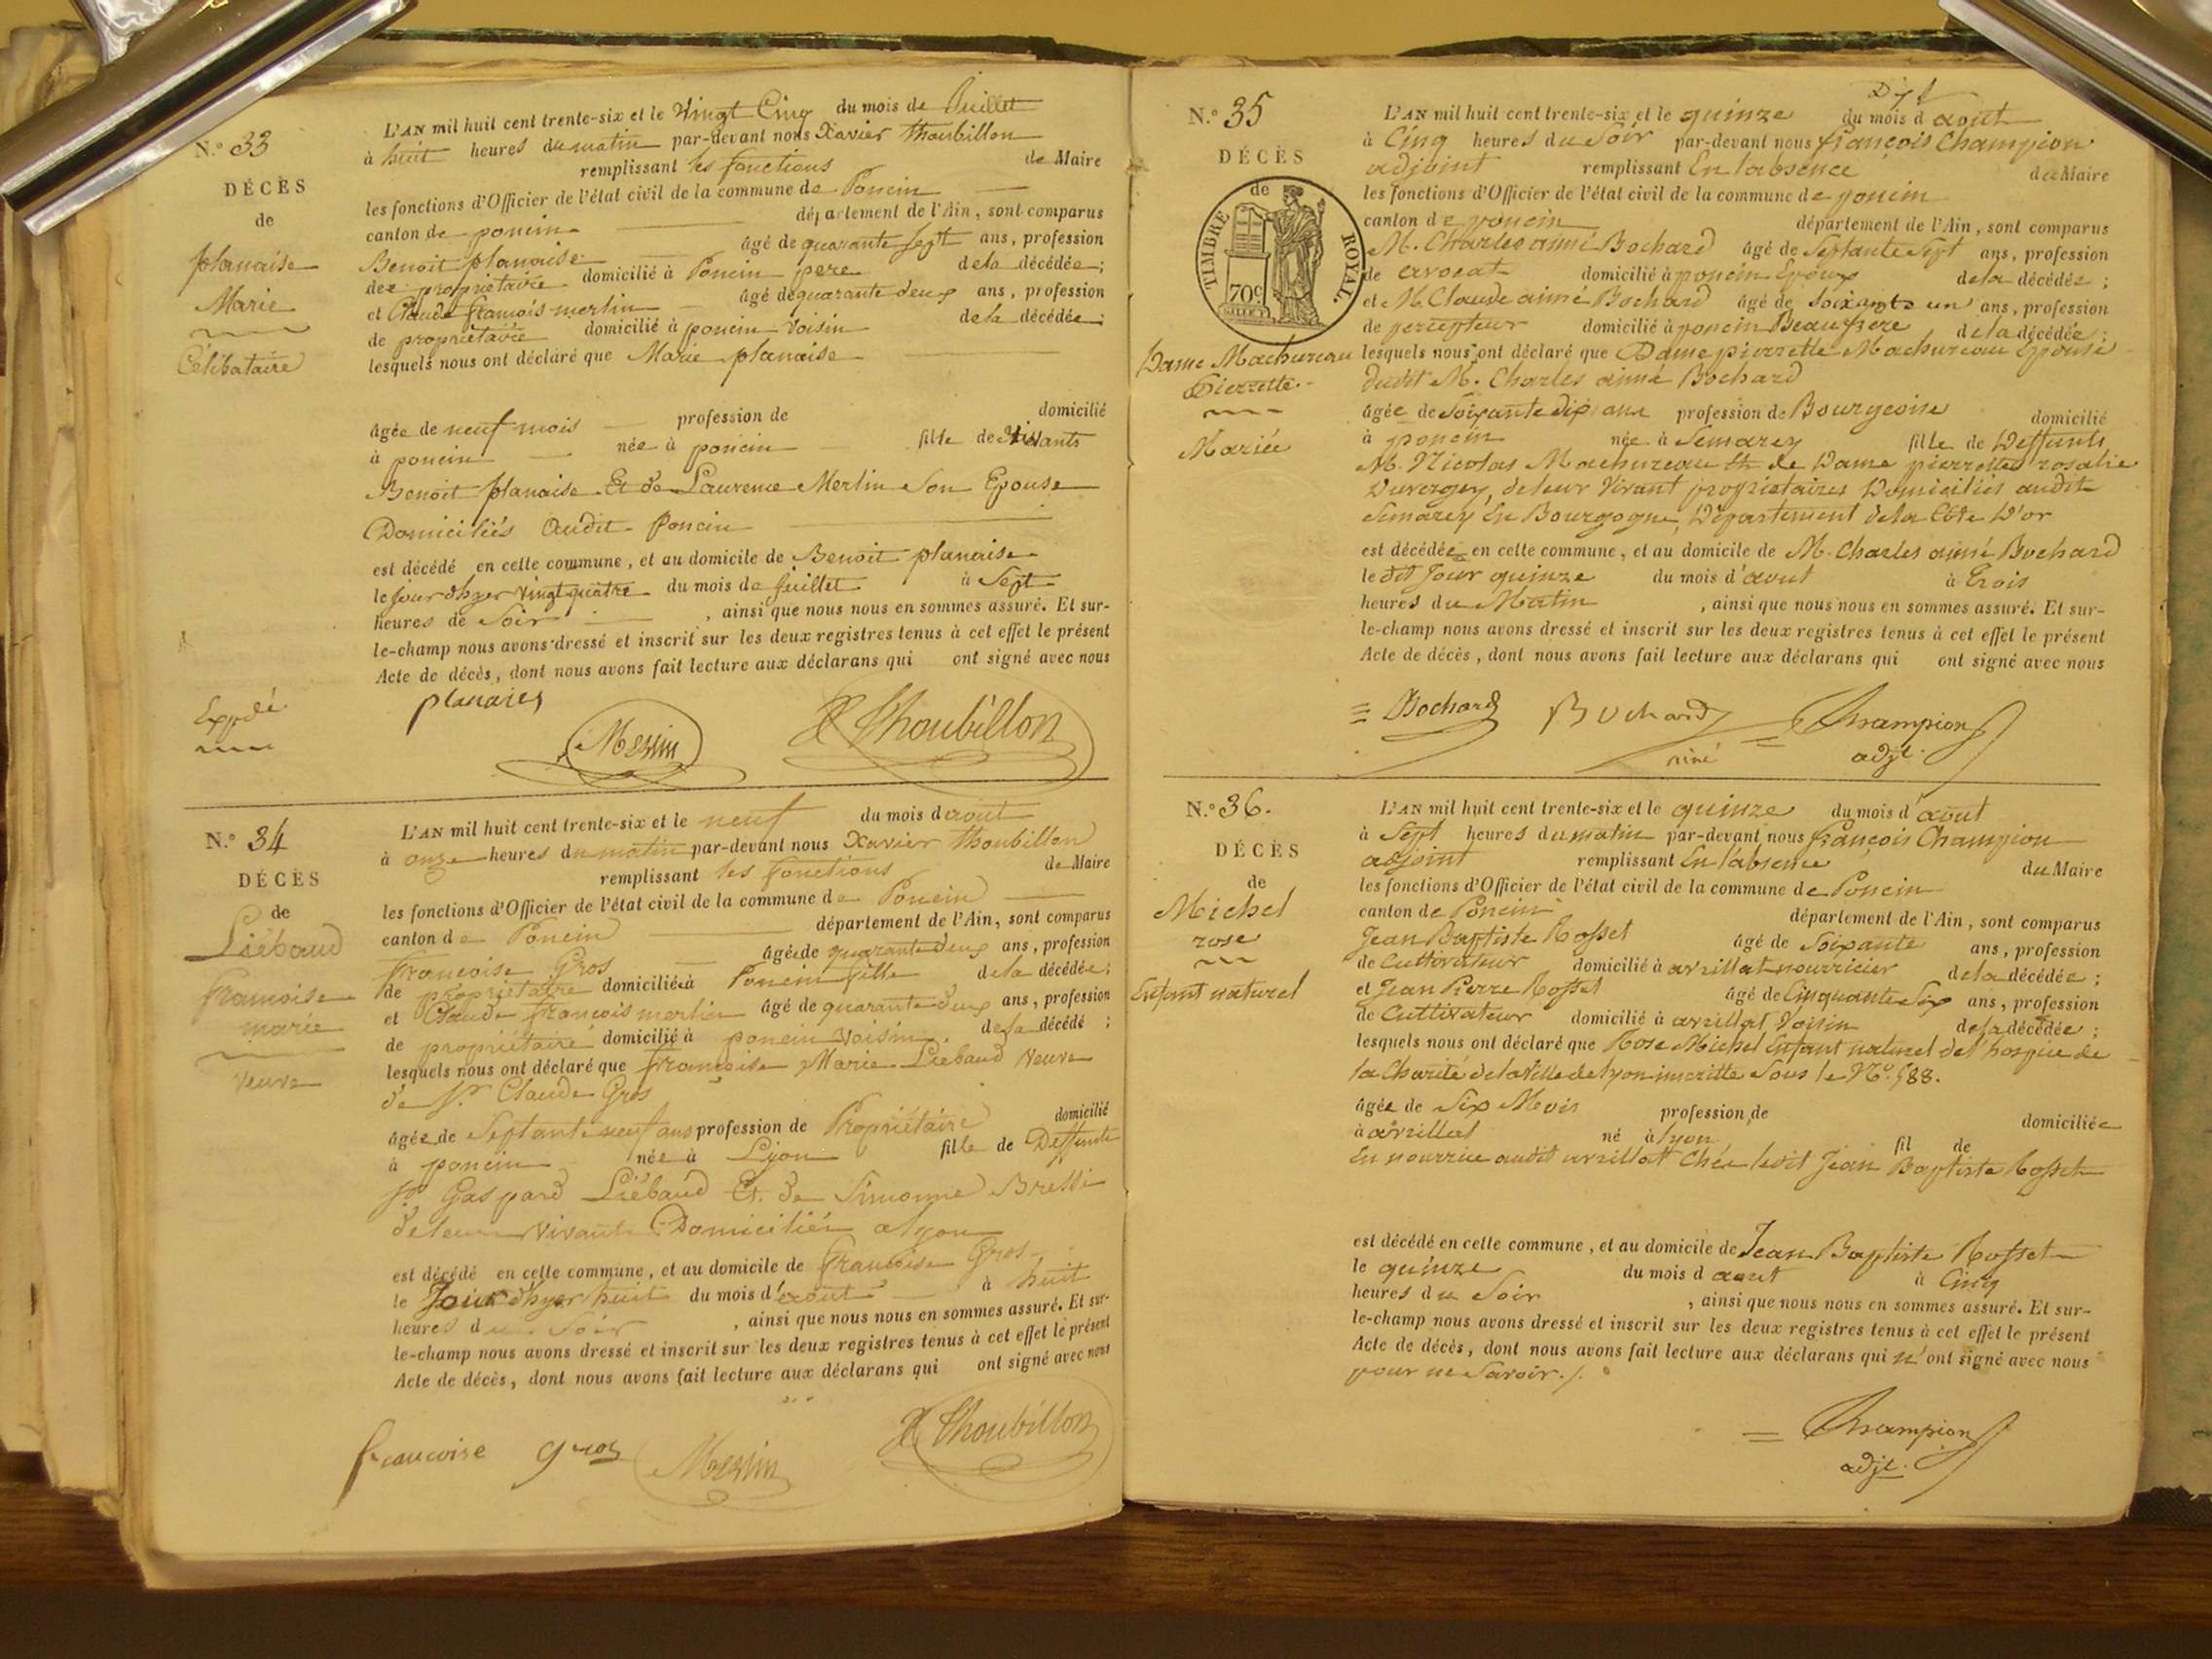 N.º 33
DÉCÈS
de
planaise
Marie
Célibataire
Expdé
L'AN mil huit cent trente-six et le Vingt Cinq du mois de Juillet
à huit heures du matin par-devant nous Xavier Thoubillon
remplissant les fonctions de Maire
les fonctions d'Officier de l'état civil de la commune de Poncin
canton de poncin département de l'Ain, sont comparus
Benoit planaise âgé de quarante sept ans, profession
de propriétaire domicilié à Poncin pere de la décédée;
et Claude françois merlin âgé de quarante deux ans, profession
de propriétaire domicilié à poncin Voisin de la décédée;
lesquels nous ont déclaré que Marie planaise
âgée de neuf mois profession de domicilié
à poncin née à poncin fille de Vivants
Benoit planaise Et de Laurence Merlin Son Epouse
Domiciliés Audit Poncin
est décédé en cette commune, et au domicile de Benoit planaise
le jour dhyer vingt quatre du mois de juillet à Sept
heures de Soir, ainsi que nous nous en sommes assuré. Et sur-
le-champ nous avons dressé et inscrit sur les deux registres tenus à cet effet le présent
Acte de décès, dont nous avons fait lecture aux déclarans qui ont signé avec nous
planaies Merlin X Thoubillon
N.º 34
DÉCÈS
de
Liébaud
françoise
marie
Veuve
L'AN mil huit cent trente-six et le neuf du mois d'aout
à onze heures du matin par-devant nous Xavier Thoubillon
remplissant les fonctions de Maire
les fonctions d'Officier de l'état civil de la commune de Poncin
canton de Poncin département de l'Ain, sont comparus
françoise Gros âgée de quarante deux ans, profession
de propriétaire domiciliée à Poncin fille de la décédée;
et Claude françois merlin âgé de quarante deux ans, profession
de propriétaire domicilié à poncin Voisin de la décédé;
lesquels nous ont déclaré que françoise Marie Liébaud Veuve
de Sr. Claude Gros
âgée de Septante neuf ans profession de Propriétaire domicilié
à poncin née à Lyon fille de Deffunts
Sr. Gaspard Liébaud Et de Simonne Bressi
de leur vivants Domiciliés a lyon
est décédé en cette commune, et au domicile de françoise Gros
le Jour dhyer huit du mois d'aout à huit
heures du Soir, ainsi que nous nous en sommes assuré. Et sur-
le-champ nous avons dressé et inscrit sur les deux registres tenus à cet effet le présent
Acte de décès, dont nous avons fait lecture aux déclarans qui ont signé avec nous
francoise gros Merlin X Thoubillon
N.º 35
DÉCÈS
de
TIMBRE ROYAL.
70c
Dame Machureau
Pierrette
Mariée
L'AN mil huit cent trente-six et le quinze du mois d'aout
à Cinq heures du Soir par-devant nous françois Champion
adjoint remplissant En l'absence du Maire
les fonctions d'Officier de l'état civil de la commune de poncin
canton de poncin département de l'Ain, sont comparus
M. Charles aimé Bochard âgé de Septante Sept ans, profession
de avocat domicilié à poncin Epoux de la décédée;
et M. Claude aimé Bochard âgé de soixante un ans, profession
de percepteur domicilié à poncin Beaufrere de la décédée;
lesquels nous ont déclaré que Dame pierrette Machureau Epouse
dudit M. Charles aimé Bochard
âgée de Soixante dix ans profession de Bourgeoise domicilié
à poncin née à Semarey fille de Deffunts
M. Nicolas Machureau Et de Dame pierrette rosalie
Duvergey, de leur Vivant propriétaires Domiciliés audit
Semarey En Bourgogne, Département de la Côte D'or
est décédée en cette commune, et au domicile de M. Charles aimé Bochard
le dit Jour quinze du mois d'aout à Trois
heures du Matin, ainsi que nous nous en sommes assuré. Et sur-
le-champ nous avons dressé et inscrit sur les deux registres tenus à cet effet le présent
Acte de décès, dont nous avons fait lecture aux déclarans qui ont signé avec nous
Bochard Bochard Champion
adjt.
N.º 36.
DÉCÈS
de
Michel
rose
Enfant naturel
L'AN mil huit cent trente-six et le quinze du mois d'aout
à Sept heures du matin par-devant nous françois Champion
adjoint remplissant En l'absence du Maire
les fonctions d'Officier de l'état civil de la commune de Poncin
canton de Poncin département de l'Ain, sont comparus
Jean Baptiste Rosset âgé de Soixante ans, profession
de Cultivateur domicilié à avrillat nourricier de la décédée;
et Jean Pierre Rosset âgé de Cinquante Six ans, profession
de Cultivateur domicilié à avrillat Voisin de la décédée;
lesquels nous ont déclaré que Rose Michel Enfant naturel de l'hospice de
la Charité de la Ville de lyon inscritte Sous le Nº. 588.
âgée de Six Mois profession de domiciliée
à avrillat né à lyon fil de
En nourrice audit avrillat Chée ledit Jean Baptiste Rosset
est décédé en cette commune, et au domicile de Jean Baptiste Rosset
le quinze du mois d aout à Cinq
heures du Soir, ainsi que nous nous en sommes assuré. Et sur-
le-champ nous avons dressé et inscrit sur les deux registres tenus à cet effet le présent
Acte de décès, dont nous avons fait lecture aux déclarans qui n'ont signé avec nous
pour ne Savoir./.
Champion
adjt.